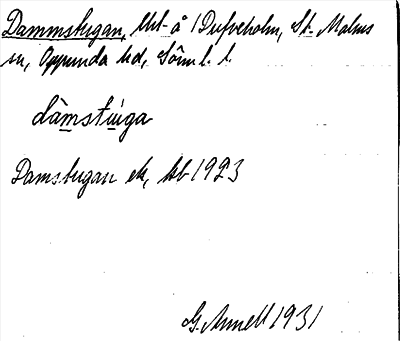 Dammstugan, lht å 1 Dufveholm, St. Malms
sn, Oppunda hd, Söml. l.
dåmstuga
Damstugan ek, kb 1923
G. Annell 1931